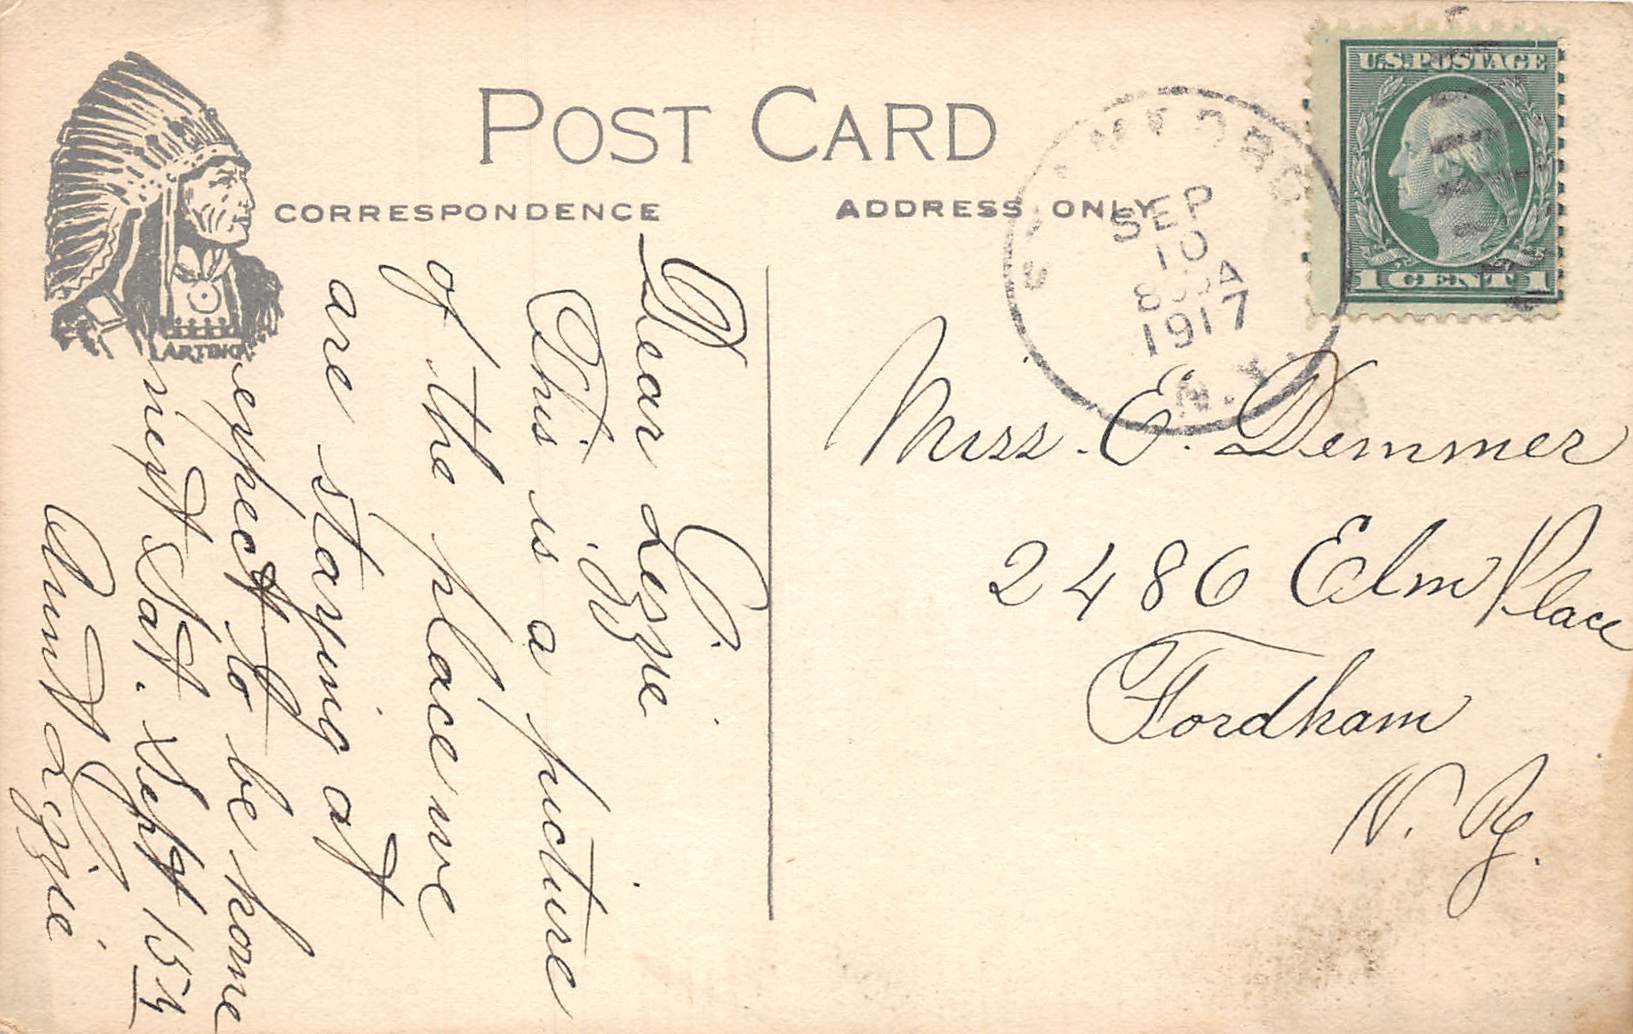 POST CARD
CORRESPONDENCE
ADDRESS ONLY
U.S. POSTAGE
1 CENT 1
SEP
10
1917
N.Y.
ARTINO
Dear Lizzie
This is a picture
of the place we
are staying at
expect to be home
next Sat. Sept 15th
Aunt Lizzie
Miss. E. Demmer
2486 Elm Place
Fordham
N. Y.